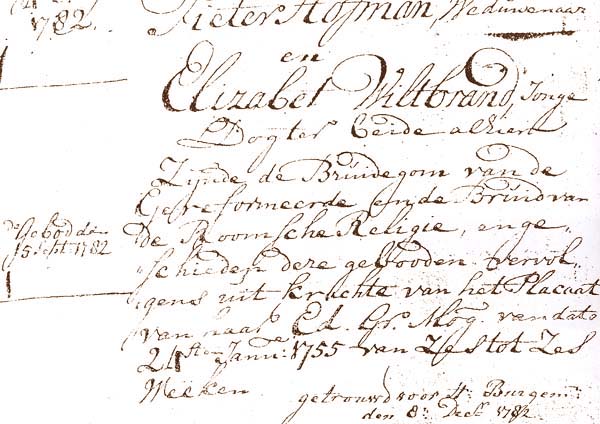 1782.
Pieter Hofman, Weduwenaar
en
Elizabet Wiltbrand, Jonge
Dogter beide alhier
Zijnde de Bruidegom van de
Gereformeerde en de Bruid van
de Roomsche Religie, en ge„
„schieden deze gebooden vervol„
gens uit krachte van het Placaat
van haar Ed. Gr. Mog. van dato
24sten Janu: 1755 van Zes tot Zes
Weeken
de gebod den
15 Sept 1782
getrouwd voor H. Burgem:
den 8: Decr. 1782.